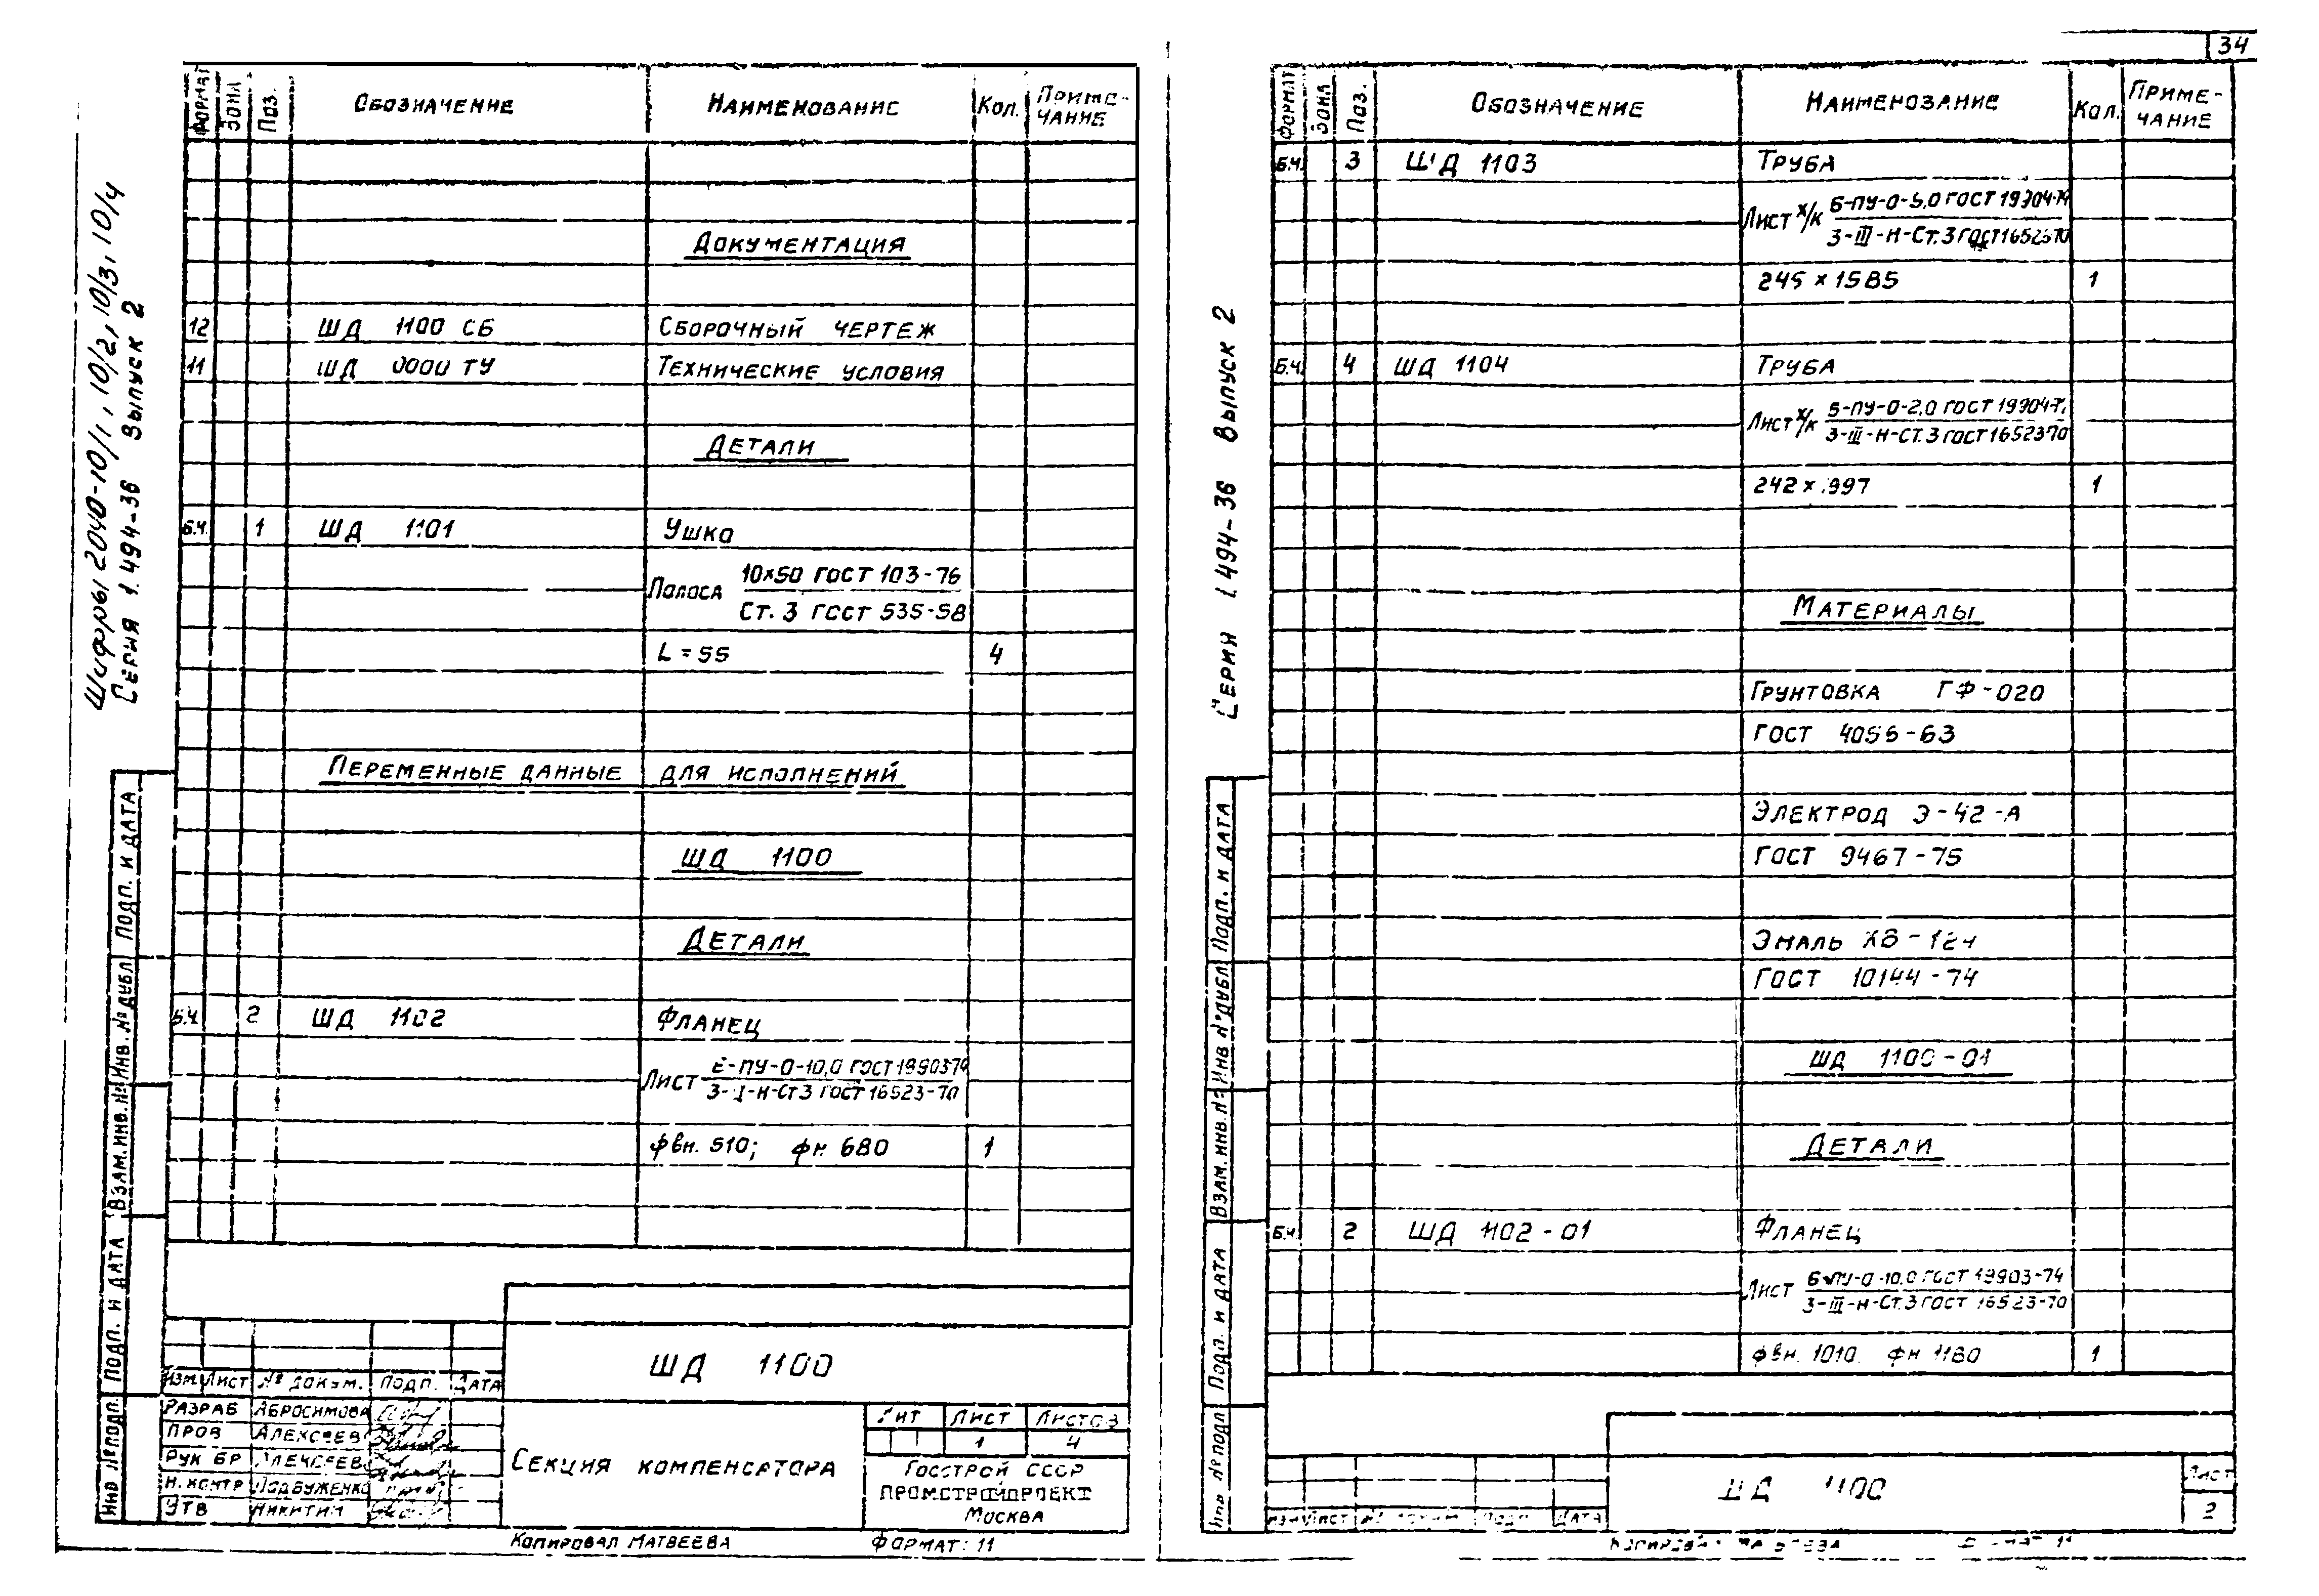 34
Шифры 2040-10/1, 10/2, 10/3, 10/4
Серия 1.494-36 Выпуск 2
Формат Зона Поз. Обозначение Наименование Кол. Приме-
чание
Документация
12 ШД 1100 СБ Сборочный чертеж
11 ШД 0000 ТУ Технические условия
Детали
Б.ч. 1 ШД 1101 Ушко
Полоса 10×50 ГОСТ 103-76
Ст. 3 ГОСТ 535-58
L = 55 4
Переменные данные для исполнений
ШД 1100
Детали
Б.ч. 2 ШД 1102 Фланец
Лист ПУ-О-10,0 ГОСТ 19903-74
Н-Ст3 ГОСТ 16523-70
φвн. 510; φн 680 1
Подп. и дата
Инв. № дубл
Взам. инв. №
Подп. и дата
Инв № подл.
ШД 1100
Изм. Лист № докум. Подп. Дата
Разраб Абросимова
Пров Алексеев
Рук бр Алексеев
Н. контр Подбуженко
Утв Никитин
Секция компенсатора
Лит Лист Листов
1 4
Госстрой СССР
Промстройпроект
Москва
Копировал Матвеева Формат: 11
Серия 1.494-36 Выпуск 2
Формат Зона Поз. Обозначение Наименование Кол. Приме-
чание
Б.ч. 3 ШД 1103 Труба
Лист х/к Б-ПУ-О-5,0 ГОСТ 19904-74
3-III-Н-Ст.3 ГОСТ 16523-70
245 × 1585 1
Б.ч. 4 ШД 1104 Труба
Лист х/к Б-ПУ-О-2,0 ГОСТ 19904-74
3-III-Н-Ст.3 ГОСТ 16523-70
242 × 1
Материалы
Грунтовка ГФ-020
ГОСТ 4056-63
Электрод Э-42-А
ГОСТ 9467-75
Эмаль ХВ-124
ГОСТ 10144-74
ШД 1100-01
Детали
Б.ч. 2 ШД 1102-01 Фланец
Лист Б-ПУ-О-10,0 ГОСТ 19903-74
3-III-Н-Ст.3 ГОСТ 16523-70
φвн. 1010. φн 1180 1
Подп. и дата
Инв № дубл
Взам. инв. №
Подп. и дата
Инв № подл
ШД 1100
Лист
2
Изм Лист № докум Подп Дата
Копировал Матвеева Формат 11